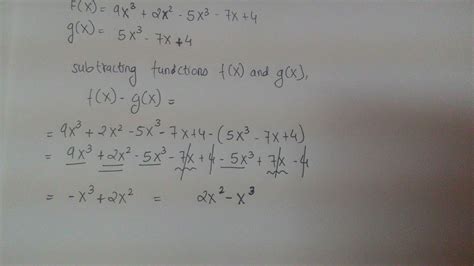 f(x) = 9x³ + 2x² - 5x³ - 7x + 4
g(x) = 5x³ - 7x + 4
subtracting functions f(x) and g(x),
f(x) - g(x) =
= 9x³ + 2x² - 5x³ - 7x + 4 - (5x³ - 7x + 4)
= 9x³ + 2x² - 5x³ - 7x + 4 - 5x³ + 7x - 4
= -x³ + 2x² = 2x² - x³